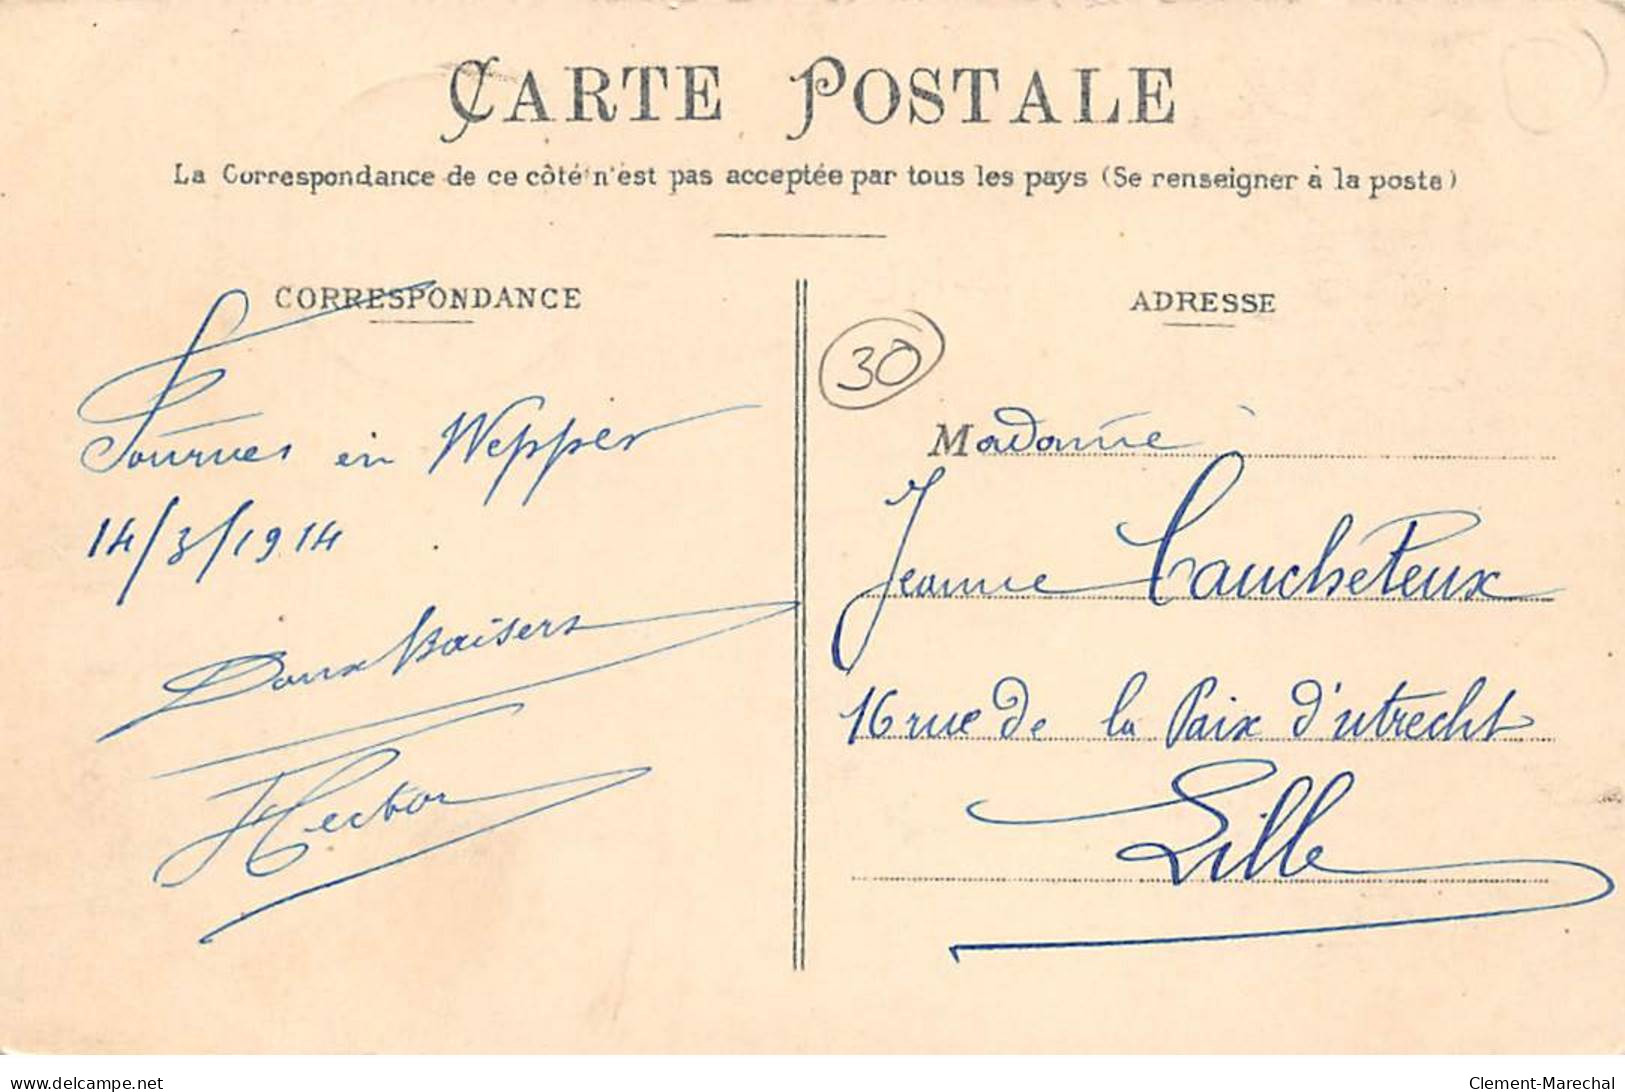 CARTE POSTALE
La Correspondance de ce côté n'est pas acceptée par tous les pays (Se renseigner à la poste)
CORRESPONDANCE
Fournes en Weppes
14/3/1914
Doux Baisers
Hector
ADRESSE
30
Madame
Jeanne Laucheteux
16 rue de la Paix d'utrecht
Lille
delcampe.net
Clement-Marechal